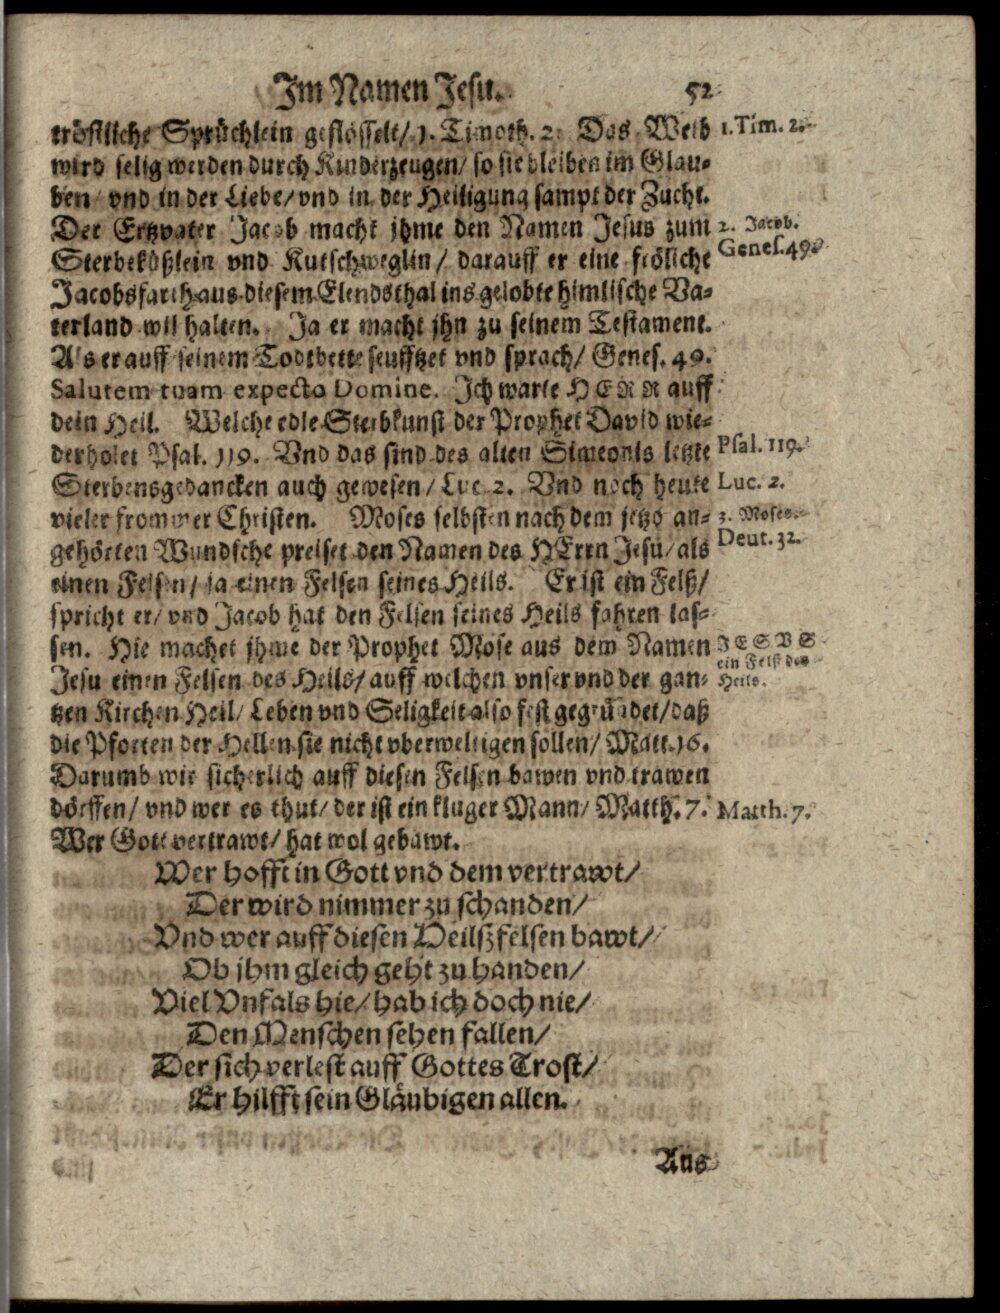 Im Namen Jesu. 52
tröstliche Sprüchlein geflösselt/ 1. Timoth. 2. Das Weib 1. Tim. 2.
wird selig werden durch Kinderzeugen/ so sie bleiben im Glau-
ben/ vnd in der Liebe/ vnd in der Heiligung sampt der Zucht.
Der Ertzvater Jacob macht jhme den Namen Jesus zum 2. Jacob.
Sterbeküßlein vnd Kutschweglin/ darauff er eine fröliche Genes. 49.
Jacobsfarth aus diesem Elendsthal ins gelobte himlische Va-
terland wil halten. Ja er macht jhn zu seinem Testament.
Als er auff seinem Todtbette seufftzet vnd sprach/ Genes. 49.
Salutem tuam expecto Domine. Ich warte HERR auff
dein Heil. Welche edle Sterbkunst der Prophet David wie-
derholet Psal. 119. Vnd das sind des alten Simeonis letzte Psal. 119.
Sterbensgedancken auch gewesen/ Luc. 2. Vnd noch heute Luc. 2.
vieler frommer Christen. Moses selbsten nach dem jetzo an- 3. Moses.
gehörten Wundsche preiset den Namen des HErrn Jesu/ als Deut. 32.
einen Felsen/ ja einen Felsen seines Heils. Er ist ein Felß/
spricht er/ vnd Jacob hat den Felsen seines Heils fahren las-
sen. Hie machet jhme der Prophet Mose aus dem Namen JESVS
Jesu einen Felsen des Heils/ auff welchen vnser vnd der gan- ein Felß des
tzen Kirchen Heil/ Leben vnd Seligkeit also fest gegründet/ daß Heils.
die Pforten der Hellen sie nicht vberweltigen sollen/ Matt. 16.
Darumb wir sicherlich auff diesen Felsen bawen vnd trawen
dörffen/ vnd wer es thut/ der ist ein kluger Mann/ Matth. 7. Matth. 7.
Wer Gott vertrawt/ hat wol gebawt.
Wer hofft in Gott vnd dem vertrawt/
Der wird nimmer zu schanden/
Vnd wer auff diesen Heilsßfelsen bawt/
Ob jhm gleich geht zu handen/
Viel Vnfals hie/ hab ich doch nie/
Den Menschen sehen fallen/
Der sich verlest auff Gottes Trost/
Er hilfft sein Gläubigen allen.
Aus